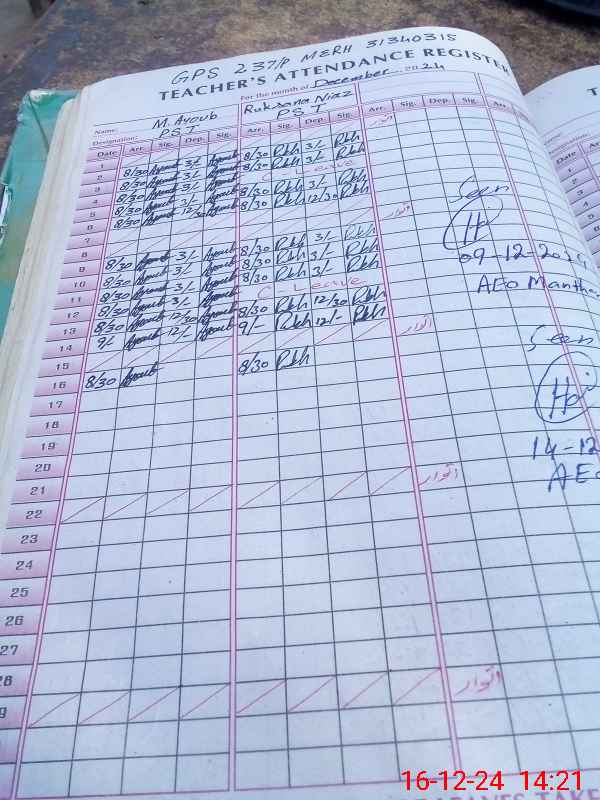 GPS 237/P MERH 31340315
TEACHER'S ATTENDANCE REGISTER
For the month of December 2024
Name: M. Ayoub Ruksana Niaz
Designation: PST PST
Date Arr. Sig. Dep. Sig. Arr. Sig. Dep. Sig. Arr. Sig. Dep. Sig. Arr.
1 اتوار
2 8/30 Ayoub 3/- Ayoub 8/30 Rkh 3/- Rkh
3 8/30 Ayoub 3/- Ayoub 8/30 Rkh 3/- Rkh
4 8/30 Ayoub 3/- Ayoub C-Leave
5 8/30 Ayoub 3/- Ayoub 8/30 Rkh 3/- Rkh
6 8/30 Ayoub 12/30 Ayoub 8/30 Rkh 12/30 Rkh
7
8 اتوار
9 8/30 Ayoub 3/- Ayoub 8/30 Rkh 3/- Rkh
10 8/30 Ayoub 3/- Ayoub 8/30 Rkh 3/- Rkh
11 8/30 Ayoub 3/- Ayoub 8/30 Rkh 3/- Rkh
12 8/30 Ayoub 3/- Ayoub C-Leave
13 8/30 Ayoub 12/30 Ayoub 8/30 Rkh 12/30 Rkh
14 9/- Ayoub 12/- Ayoub 9/- Rkh 12/- Rkh
15 اتوار
16 8/30 Ayoub 8/30 Rkh
17
18
19
20
21
22 اتوار
23
24
25
26
27
28
9 اتوار
Seen
09-12-202
AEO Mantha
Seen
14-12
AEO
16-12-24 14:21